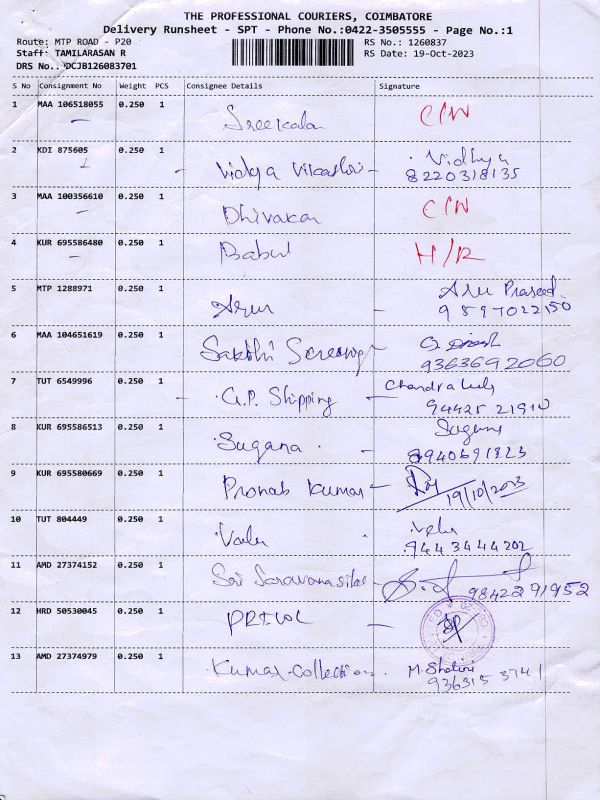 THE PROFESSIONAL COURIERS, COIMBATORE
Delivery Runsheet - SPT - Phone No.:0422-3505555 - Page No.:1
Route: MTP ROAD - P20 RS No.: 1260837
Staff: TAMILARASAN R RS Date: 19-Oct-2023
DRS No.: DCJB126083701
S No Consignment No Weight PCS Consignee Details Signature
1 MAA 106518055 0.250 1 Sreekala C/W
2 KDI 875605 0.250 1 Vidya Vikashri Vidhya
8220318135
3 MAA 100356610 0.250 1 Dhivakar C/W
4 KUR 695586480 0.250 1 Babul H/R
5 MTP 1288971 0.250 1 Arun Arun Prasad
9897022150
6 MAA 104651619 0.250 1 Sakthi Screens
9363692060
7 TUT 6549996 0.250 1 G.P. Shipping Chandra
94425 21910
8 KUR 695586513 0.250 1 Sugana Sugana
8940691823
9 KUR 695580669 0.250 1 Pronab Kumar
19/10/2023
10 TUT 804449 0.250 1 Velu Velu
9443444202
11 AMD 27374152 0.250 1 Sri Saravana silks
9842291952
12 HRD 50530045 0.250 1 PRICOL
13 AMD 27374979 0.250 1 Kumar Collections M. Shalini
936315 3741